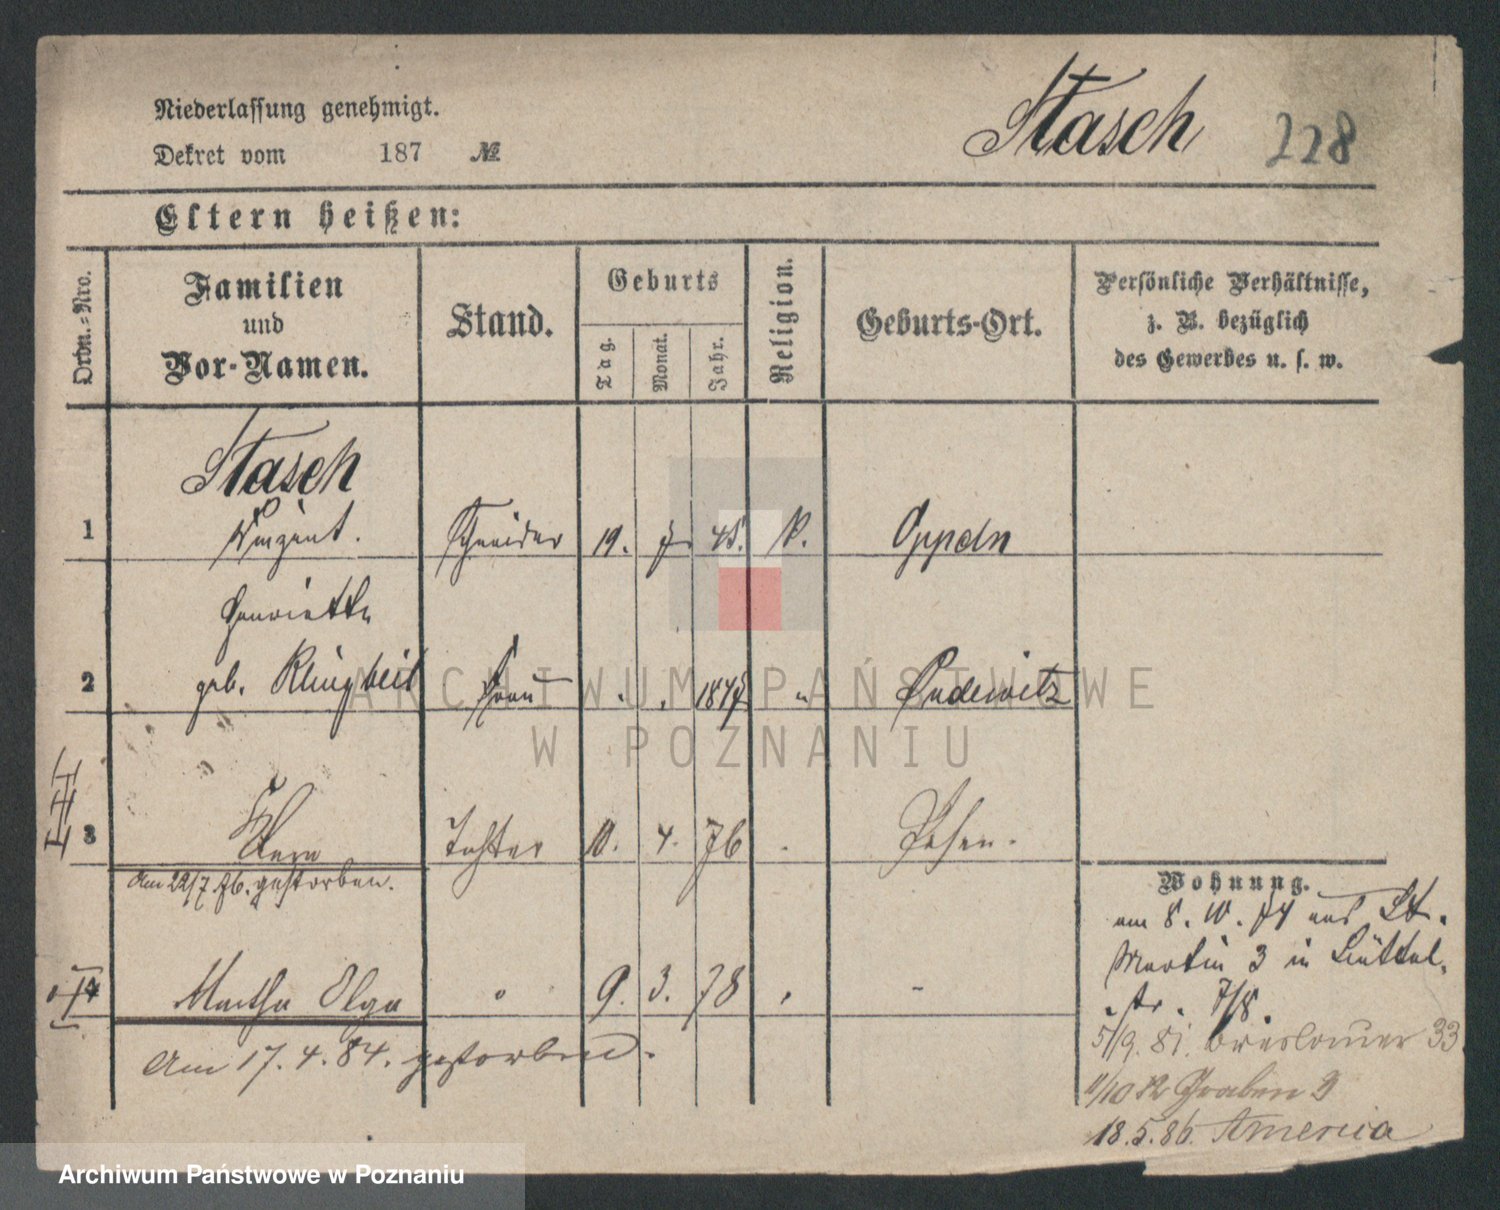 Niederlassung genehmigt.
Stasch 228
Dekret vom 187 №
Eltern heißen:
Ordn.=Nro.
Familien
und
Vor-Namen.
Stand.
Geburts
Tag.
Monat.
Jahr.
Religion.
Geburts-Ort.
Persönliche Verhältnisse,
z. B. bezüglich
des Gewerbes u. s. w.
Stasch
1 Vinzent. Schneider 19. 7. 45. K.
Henriette
2 geb. Klingbeil Frau 184 Pudewitz
3 Tochter 10. 4. 76 Posen.
Am 22/7 76. gestorben.
4 Martha Olga 9. 3. 78
Am 17. 4. 84. gestorben.
Wohnung.
am 8. 74 aus St.
Martin 3 in Büttel-
str. 7/8.
5/9. 81. Breslauer 33
11/10 82 Graben 9
18.5.86. America
ARCHIWUM PAŃSTWOWE
W POZNANIU
Archiwum Państwowe w Poznaniu